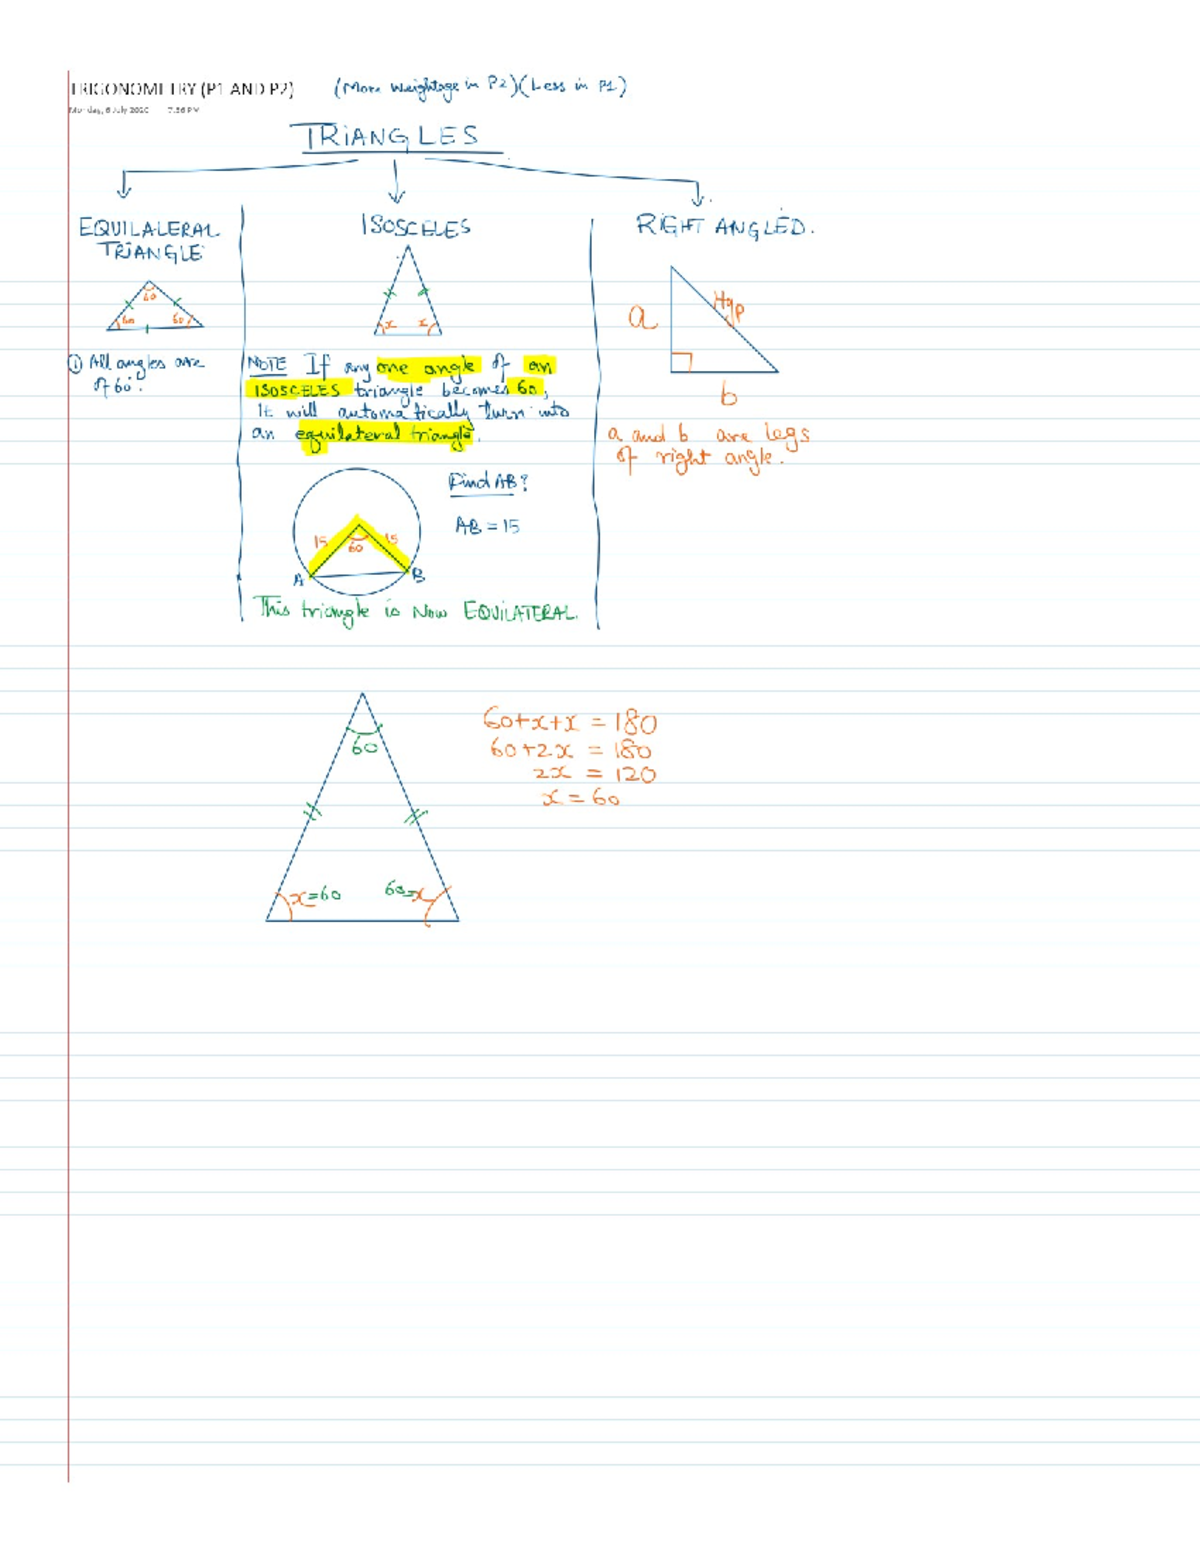 TRIGONOMETRY (P1 AND P2) (More weightage in P2) (Less in P1)
Monday, 6 July 2020 7:56 PM
TRIANGLES
EQUILALERAL
TRIANGLE
60
60 60
① All angles are
of 60°.
ISOSCELES
x x
NOTE If any one angle of an
ISOSCELES triangle becomes 60,
It will automatically turn into
an equilateral triangle.
Find AB?
AB = 15
15 60 15
A B
This triangle is Now EQUILATERAL.
RIGHT ANGLED.
a Hyp
b
a and b are legs
of right angle.
60
x=60 60=x
60+x+x = 180
60+2x = 180
2x = 120
x = 60